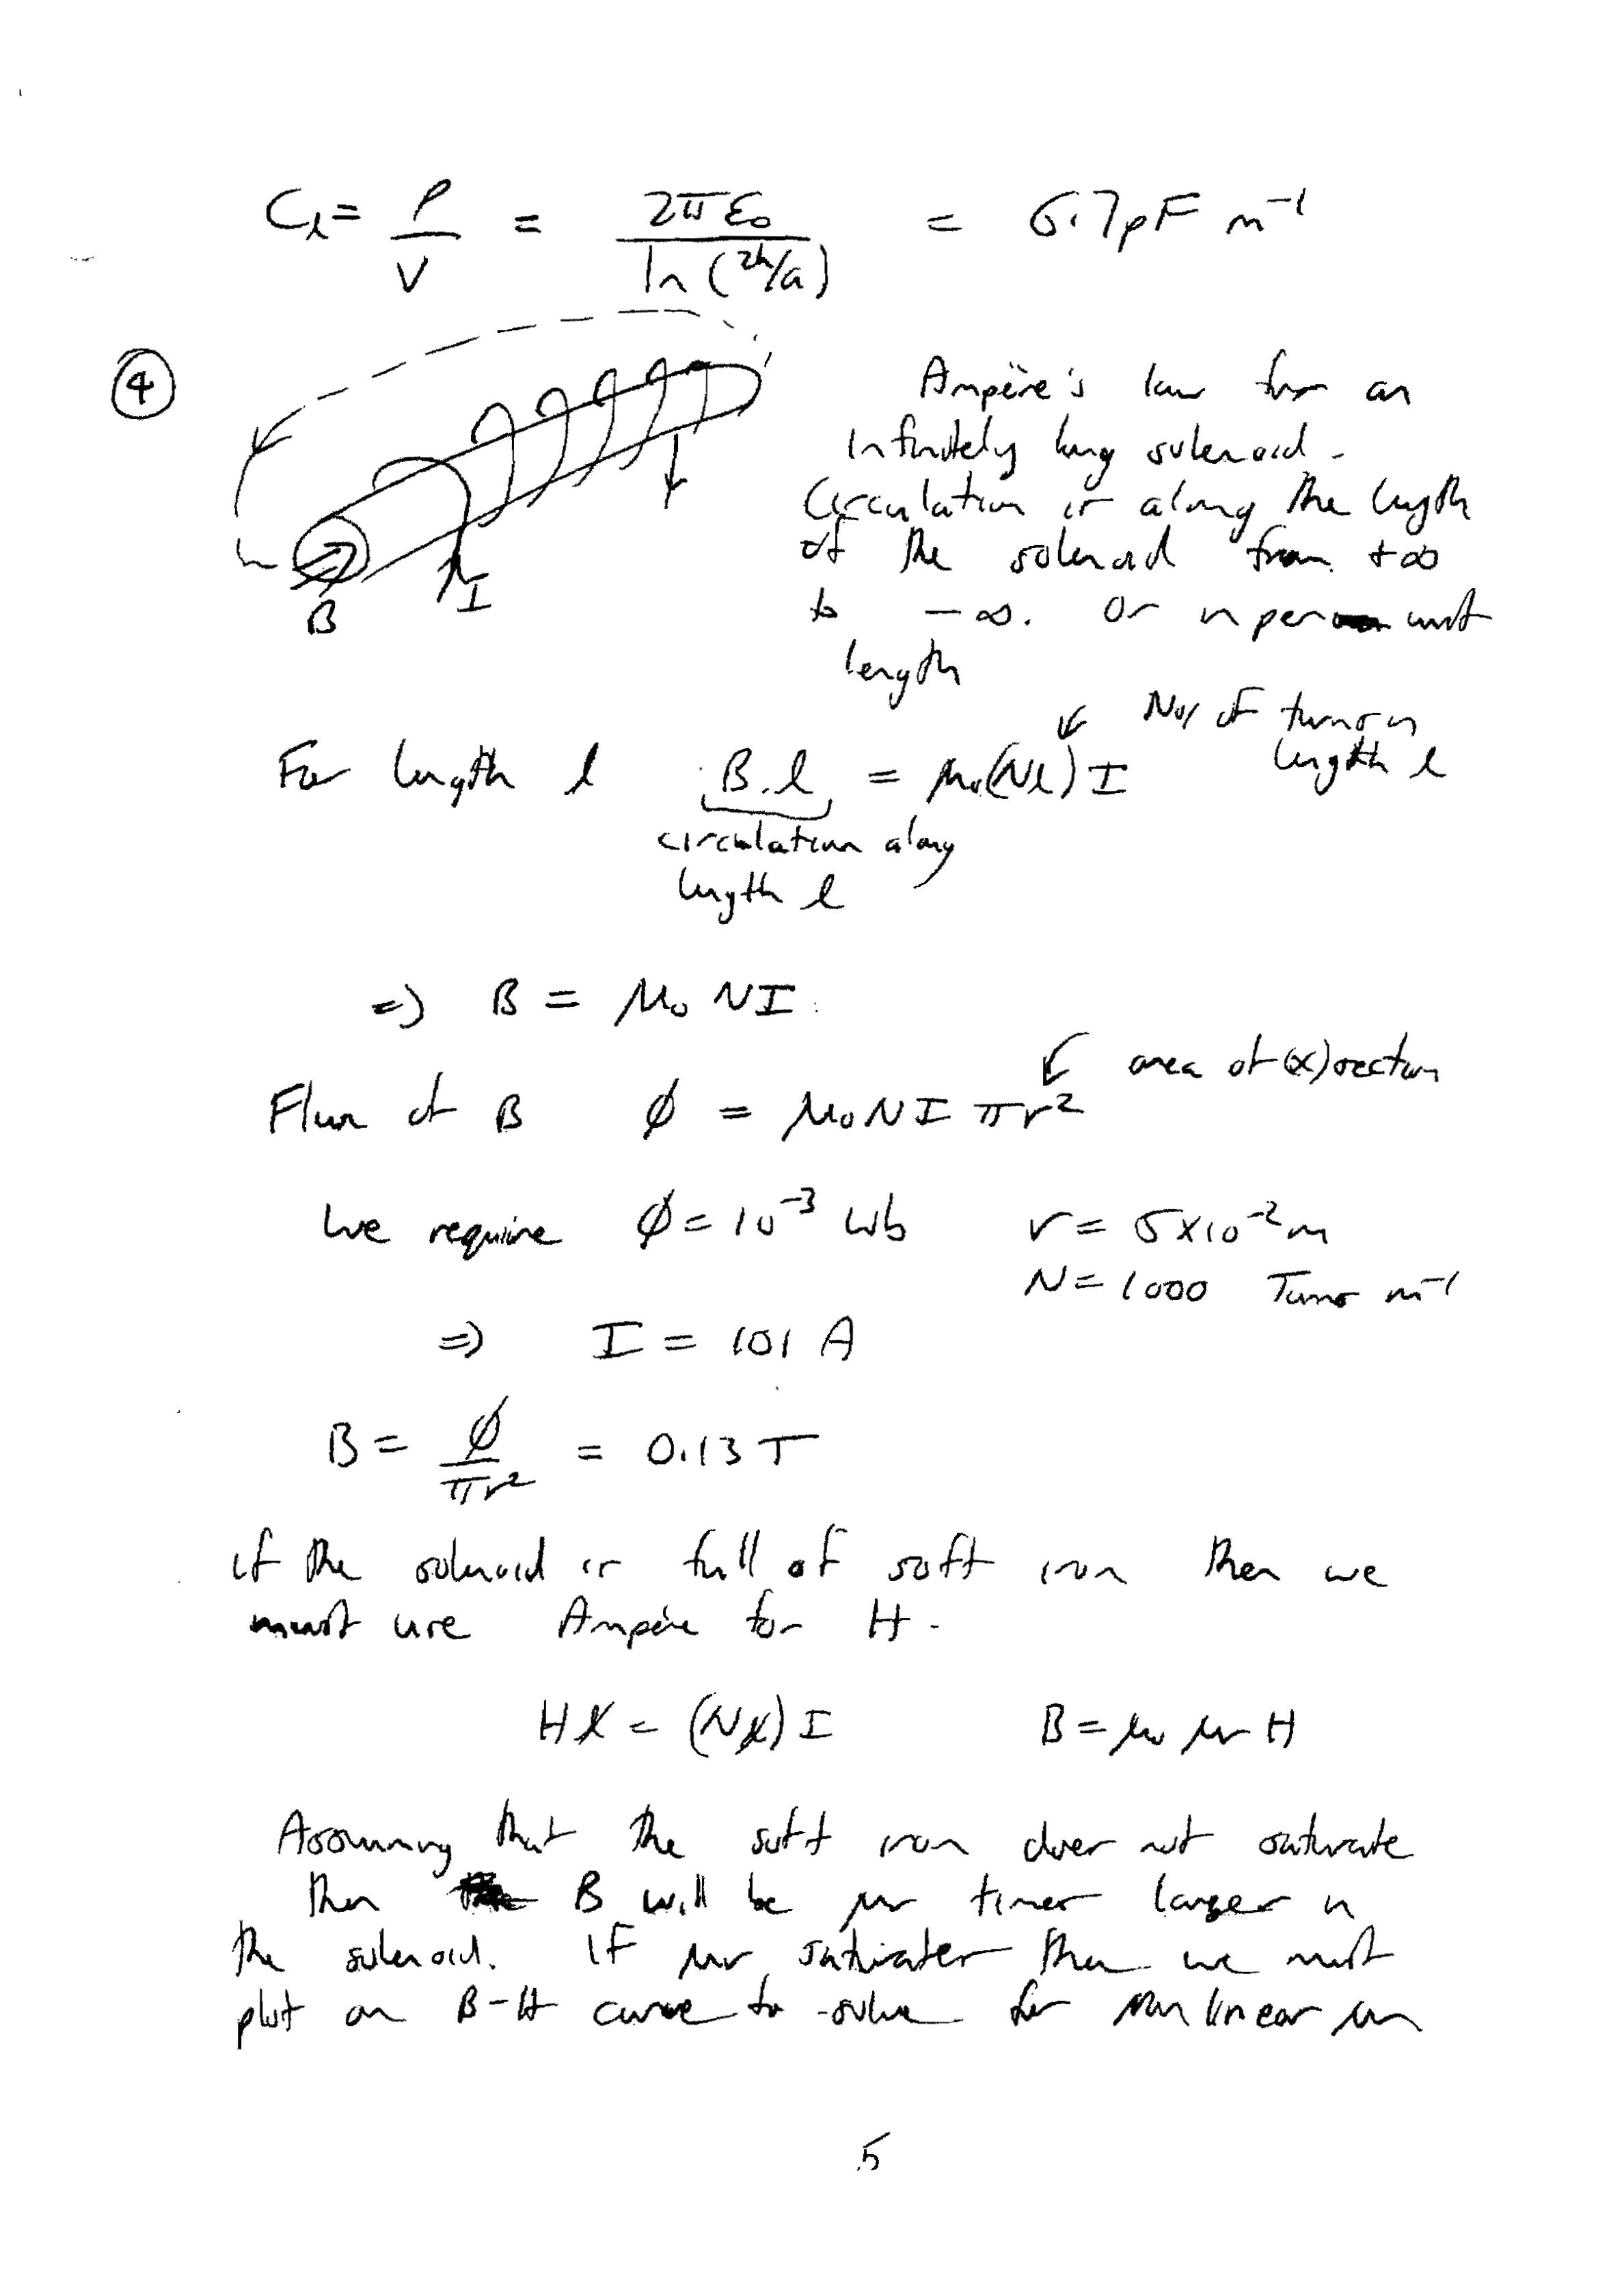 C_l = ρ/V = 2πε₀ / ln(2h/a) = 6.7pF m⁻¹
④
Ampère's law for an
infinitely long solenoid.
Circulation is along the length
of the solenoid from +∞
to -∞. Or n per unit
length
B
I
For length l B.l = μ₀(Nl) I
No/ of turns in
length l
circulation along
length l
=> B = μ₀ NI
Flux of B ϕ = μ₀NI πr²
area of (x)section
We require ϕ = 10⁻³ Wb r = 5x10⁻²m
N = 1000 Turns m⁻¹
=> I = 101 A
B = ϕ/πr² = 0.13T
if the solenoid is full of soft iron then we
must use Ampère for H.
Hl = (Nl) I B = μ₀ μr H
Assuming that the soft iron does not saturate
then B will be μr times larger in
the solenoid. If μr saturates then we must
plot an B-H curve to solve for non linear μr
5